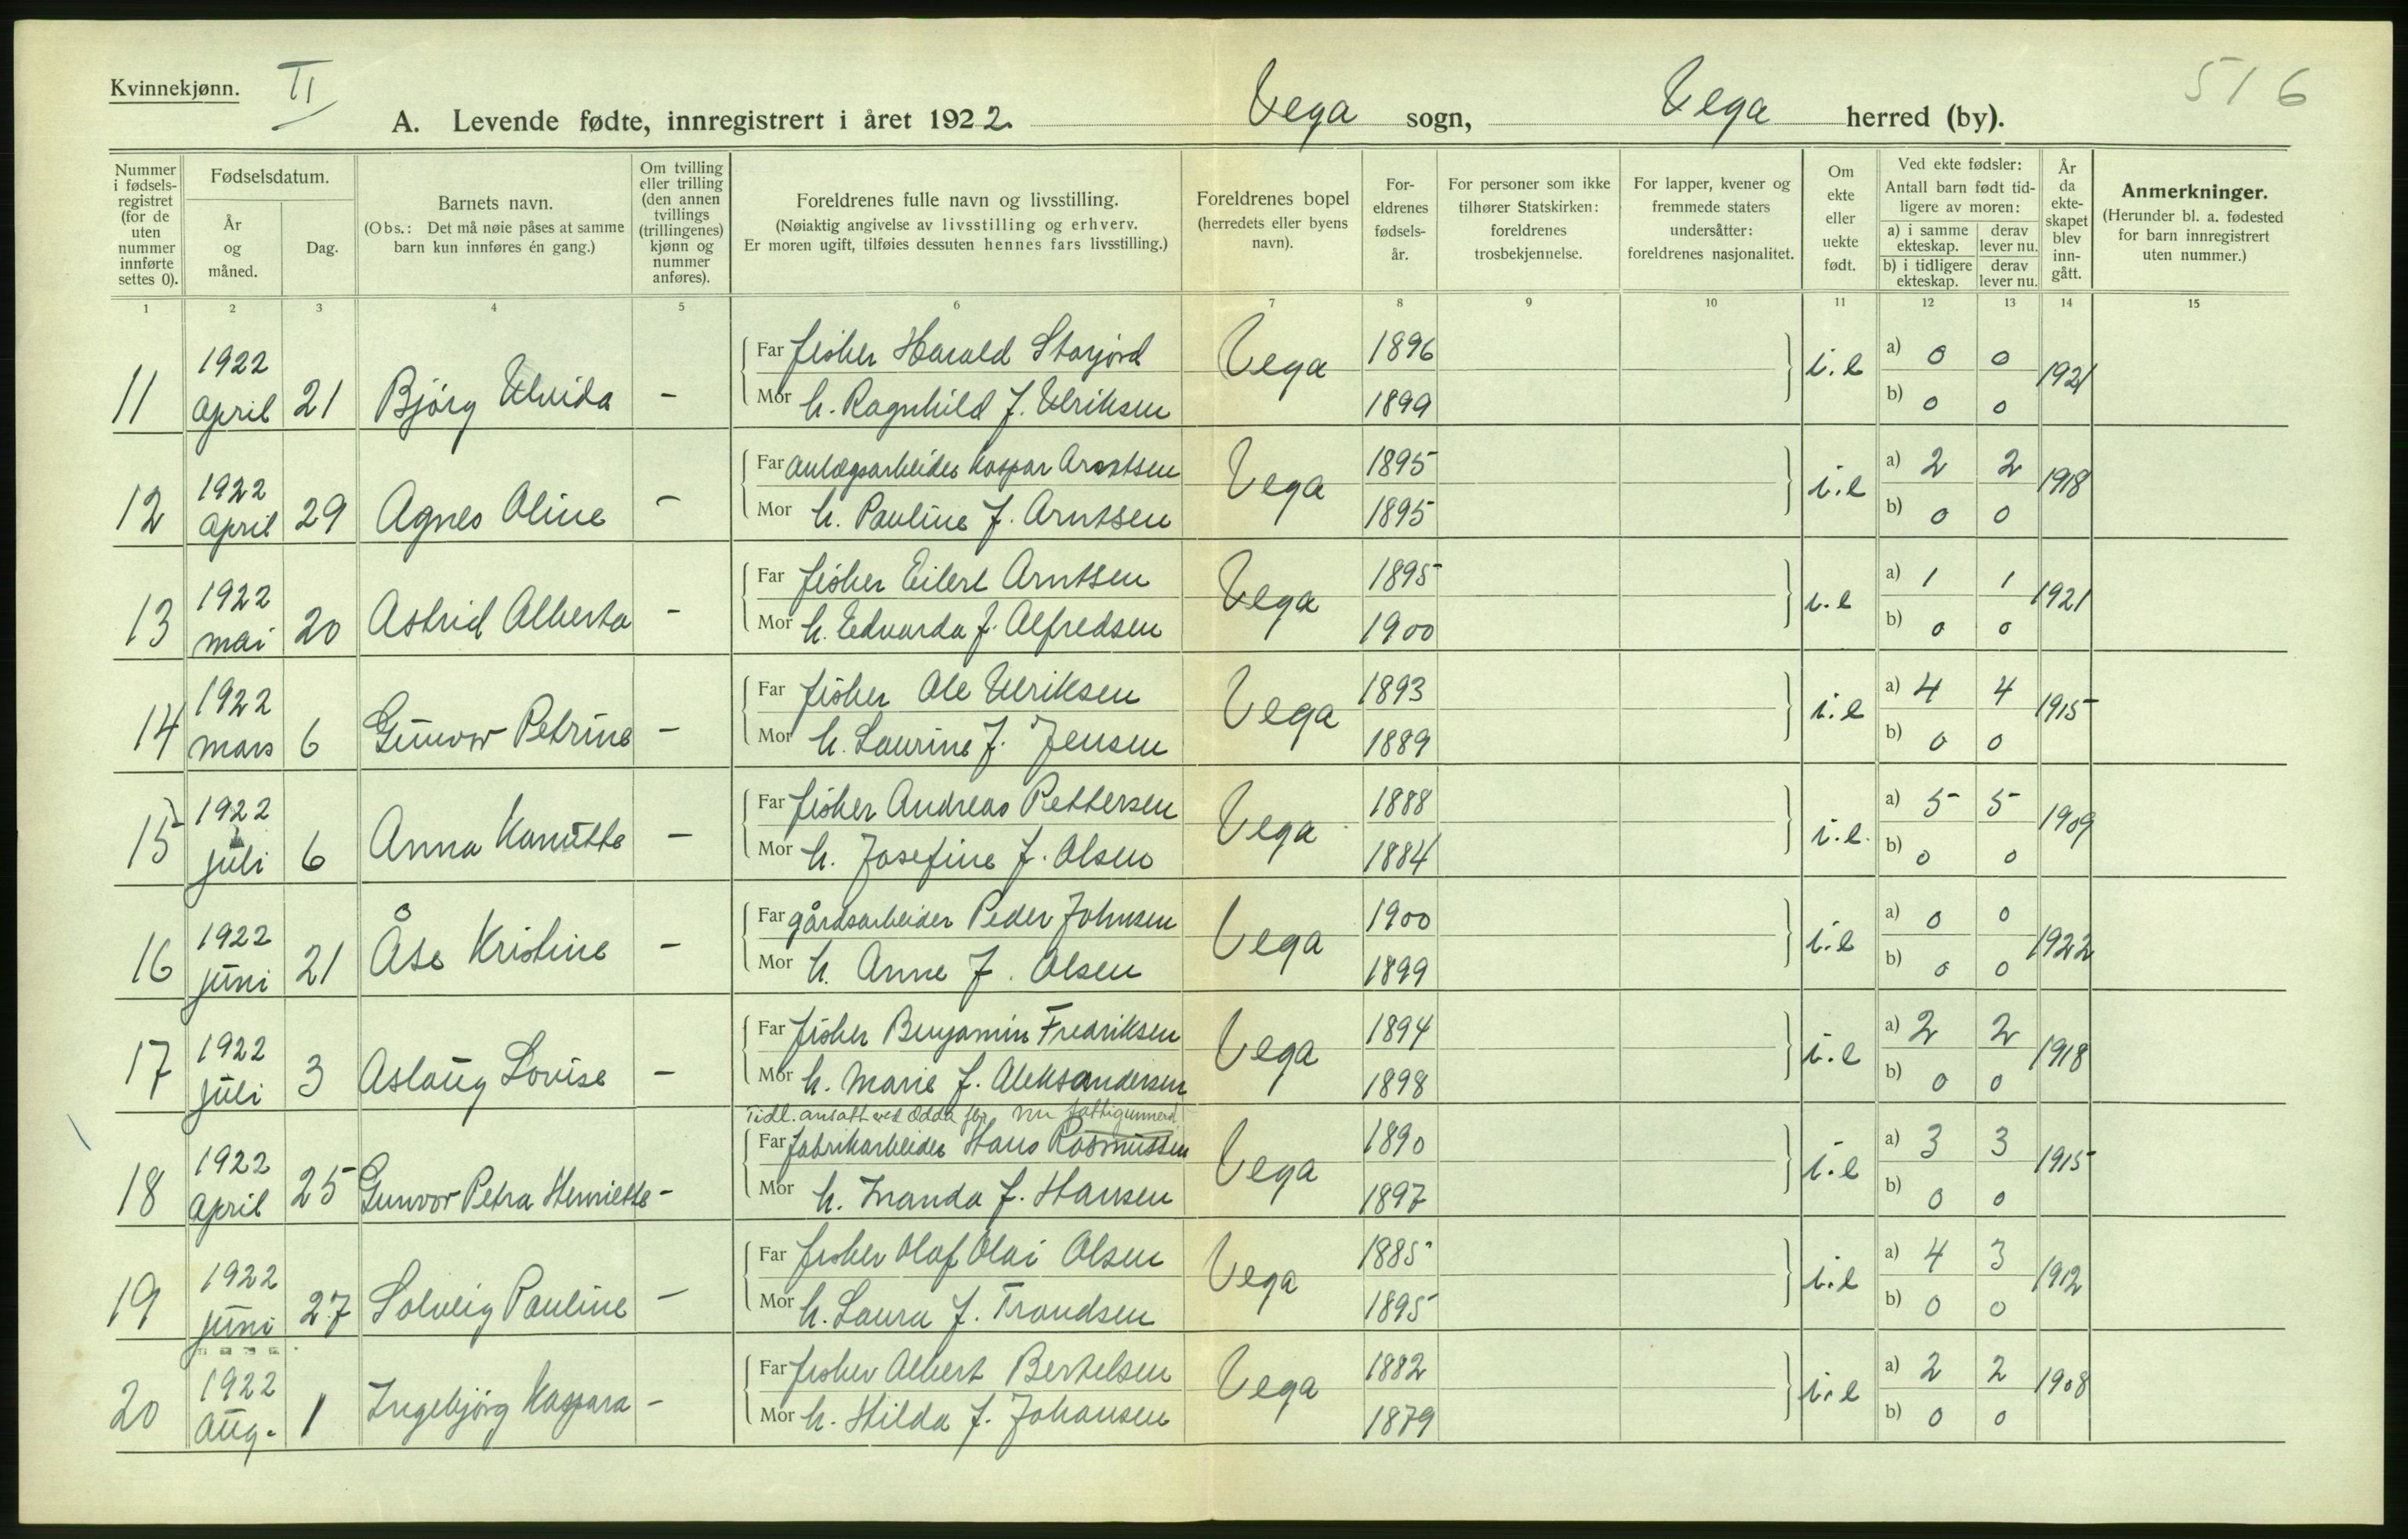 Kvinnekjønn. II 516
A. Levende fødte, innregistrert i året 1922. Vega sogn, Vega herred (by).
Nummer i fødselsregistret (for de uten nummer innførte settes 0).
Fødselsdatum.
År og måned.
Dag.
Barnets navn.
(Obs.: Det må nøie påses at samme barn kun innføres én gang.)
Om tvilling eller trilling (den annen tvillings (trillingenes) kjønn og nummer anføres).
Foreldrenes fulle navn og livsstilling.
(Nøiaktig angivelse av livsstilling og erhverv.
Er moren ugift, tilføies dessuten hennes fars livsstilling.)
Foreldrenes bopel
(herredets eller byens navn).
Foreldrenes fødselsår.
For personer som ikke tilhører Statskirken: foreldrenes trosbekjennelse.
For lapper, kvener og fremmede staters undersåtter: foreldrenes nasjonalitet.
Om ekte eller uekte født.
Ved ekte fødsler:
Antall barn født tidligere av moren:
a) i samme ekteskap. derav lever nu.
b) i tidligere ekteskap. derav lever nu.
År da ekteskapet blev inngått.
Anmerkninger.
(Herunder bl. a. fødested for barn innregistrert uten nummer.)
1 2 3 4 5 6 7 8 9 10 11 12 13 14 15
11 1922 april 21 Bjørg Ulvida - Far fisker Harald Storjord Vega 1896 i.e a) 0 0 1921
Mor h. Ragnhild f. Ulriksen 1899 b) 0 0
12 1922 april 29 Agnes Oline - Far anlægsarbeider Kaspar Arntsen Vega 1895 i.e a) 2 2 1918
Mor h. Pauline f. Arntsen 1895 b) 0 0
13 1922 mai 20 Astrid Alberta - Far fisker Eilert Arntsen Vega 1895 i.e a) 1 1 1921
Mor h. Edvarda f. Alfredsen 1900 b) 0 0
14 1922 mars 6 Gunvor Petrine - Far fisker Ole Ulriksen Vega 1893 i.e a) 4 4 1915
Mor h. Laurine f. Jensen 1889 b) 0 0
15 1922 juli 6 Anna Kanutte - Far fisker Andreas Pettersen Vega 1888 i.e. a) 5 5 1909
Mor h. Josefine f. Olsen 1884 b) 0 0
16 1922 juni 21 Åse Kristine - Far gårdsarbeider Peder Johnsen Vega 1900 i.e a) 0 0 1922
Mor h. Anne f. Olsen 1899 b) 0 0
17 1922 juli 3 Aslaug Lovise - Far fisker Benjamin Fredriksen Vega 1894 i.e a) 2 2 1918
Mor h. Marie f. Aleksandersen 1898 b) 0 0
Tidl. ansatt ved Odda nu
18 1922 april 25 Gunvor Petra Henriette - Far fabrikarbeider Hans Rasmussen Vega 1890 i.e a) 3 3 1915
Mor h. Inanda f. Hansen 1897 b) 0 0
19 1922 juni 27 Solveig Pauline - Far fisker Olaf Olai Olsen Vega 1885 i.e a) 4 3 1912
Mor h. Laura f. Trondsen 1895 b) 0 0
20 1922 aug. 1 Ingebjørg Kaspara - Far fisker Albert Bertelsen Vega 1882 i.e a) 2 2 1908
Mor h. Hilda f. Johansen 1879 b) 0 0